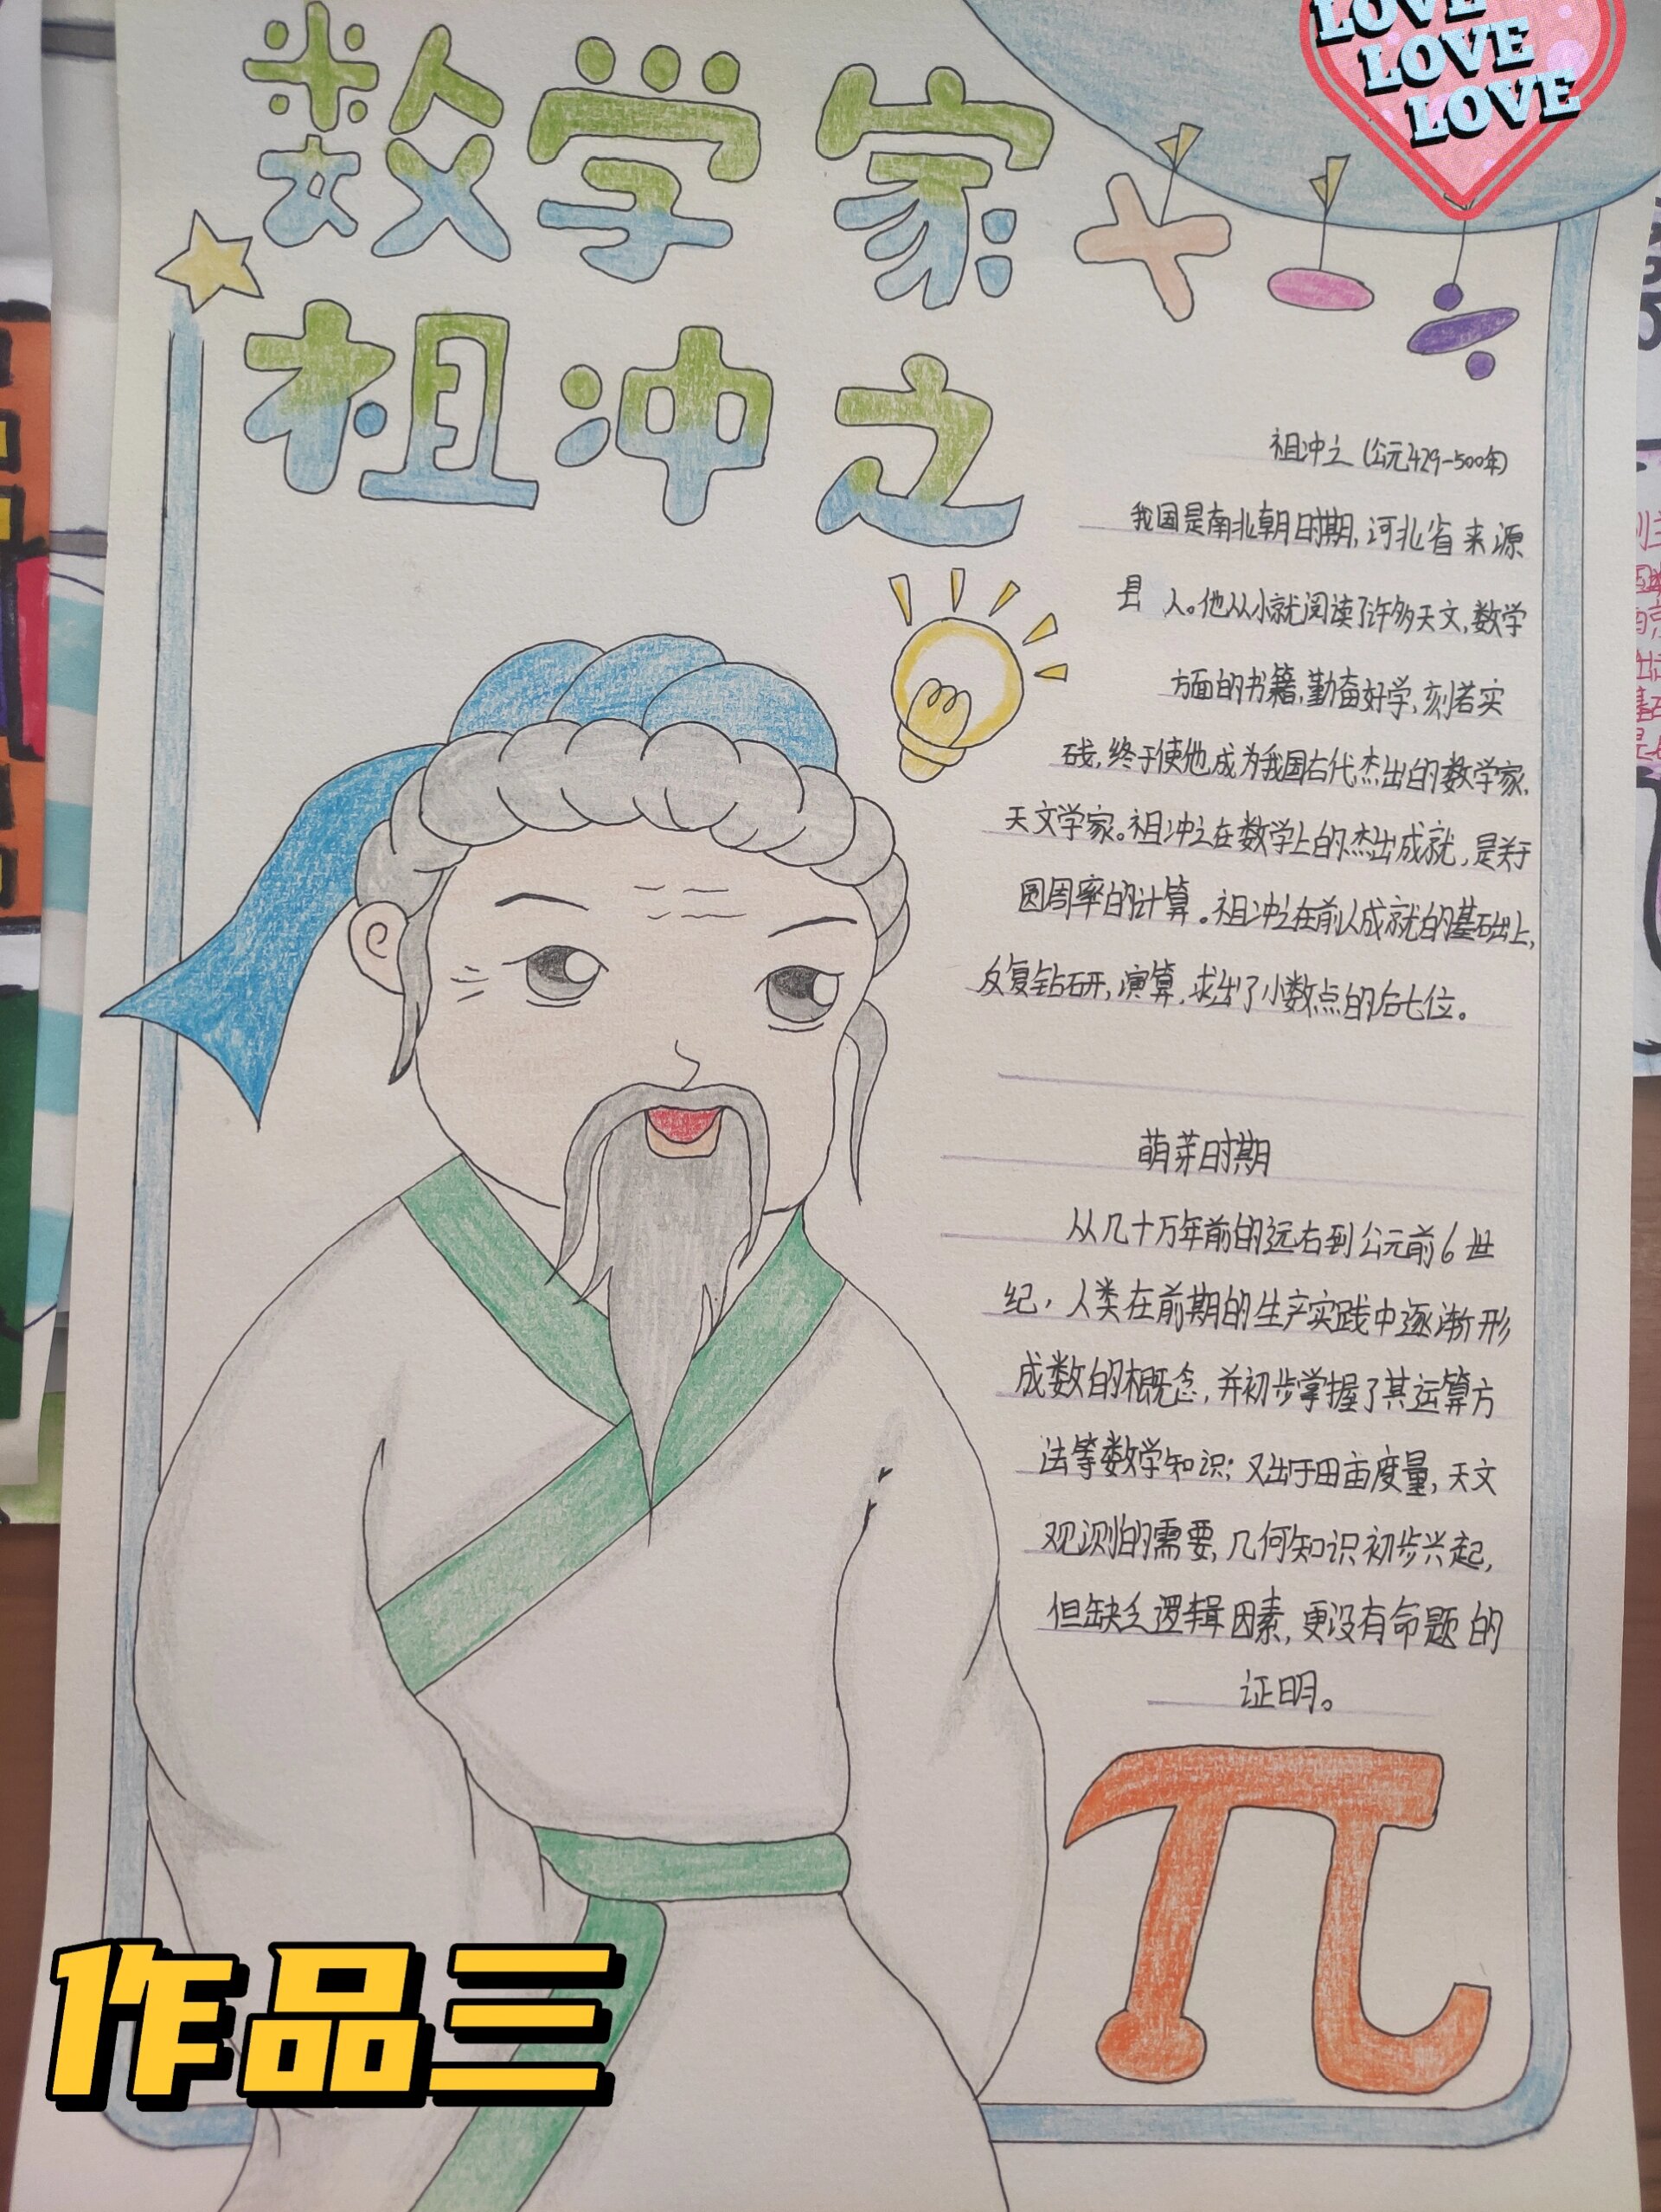 LOVE
LOVE
LOVE
数学家
祖冲之
祖冲之(公元429-500年)
我国是南北朝时期,河北省来源
县 人。他从小就阅读了许多天文,数学
方面的书籍,勤奋好学,刻苦实
践,终于使他成为我国古代杰出的数学家,
天文学家。祖冲之在数学上的杰出成就,是关于
圆周率的计算。祖冲之在前人成就的基础上,
反复钻研,演算,求出了小数点的后七位。
萌芽时期
从几十万年前的远古到公元前6世
纪,人类在前期的生产实践中逐渐形
成数的概念,并初步掌握了其运算方
法等数学知识;又出于田亩度量,天文
观测的需要,几何知识初步兴起,
但缺乏逻辑因素,更没有命题的
证明。
π
作品三